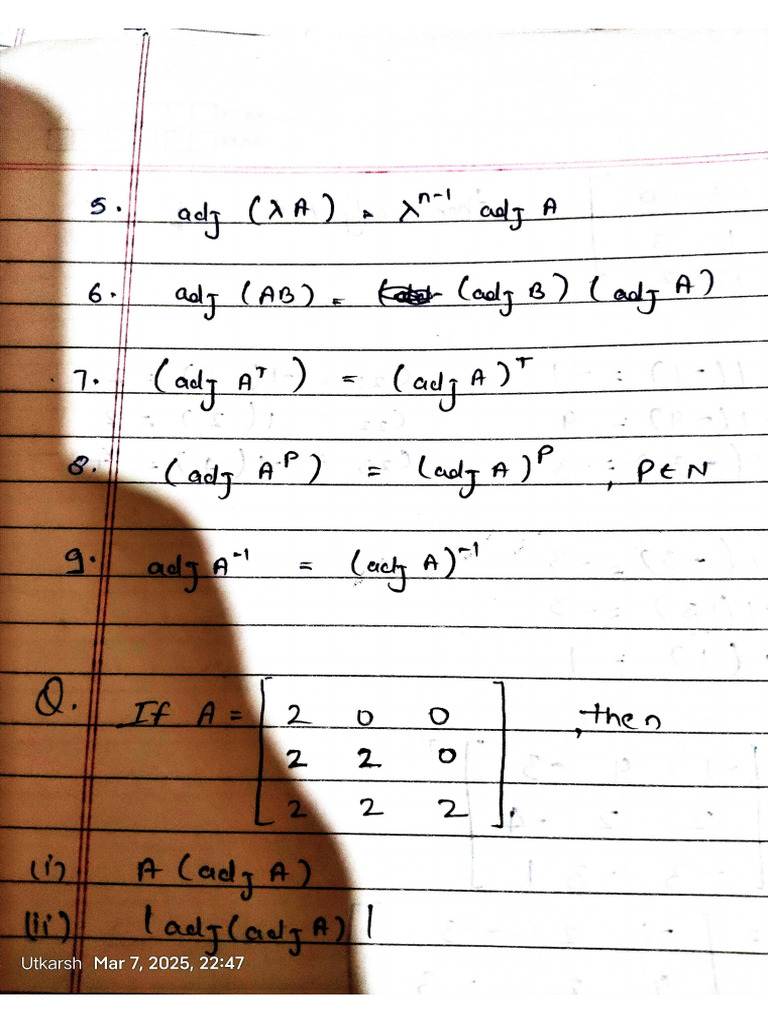 5. adj (λA) = λⁿ⁻¹ adj A
6. adj (AB) = (adj B) (adj A)
7. (adj Aᵀ) = (adj A)ᵀ
8. (adj Aᴾ) = (adj A)ᴾ ; P∈N
9. adj A⁻¹ = (adj A)⁻¹
Q. If A = [2 0 0
2 2 0
2 2 2], then
(i) A (adj A)
(ii) |adj(adj A)|
Utkarsh Mar 7, 2025, 22:47